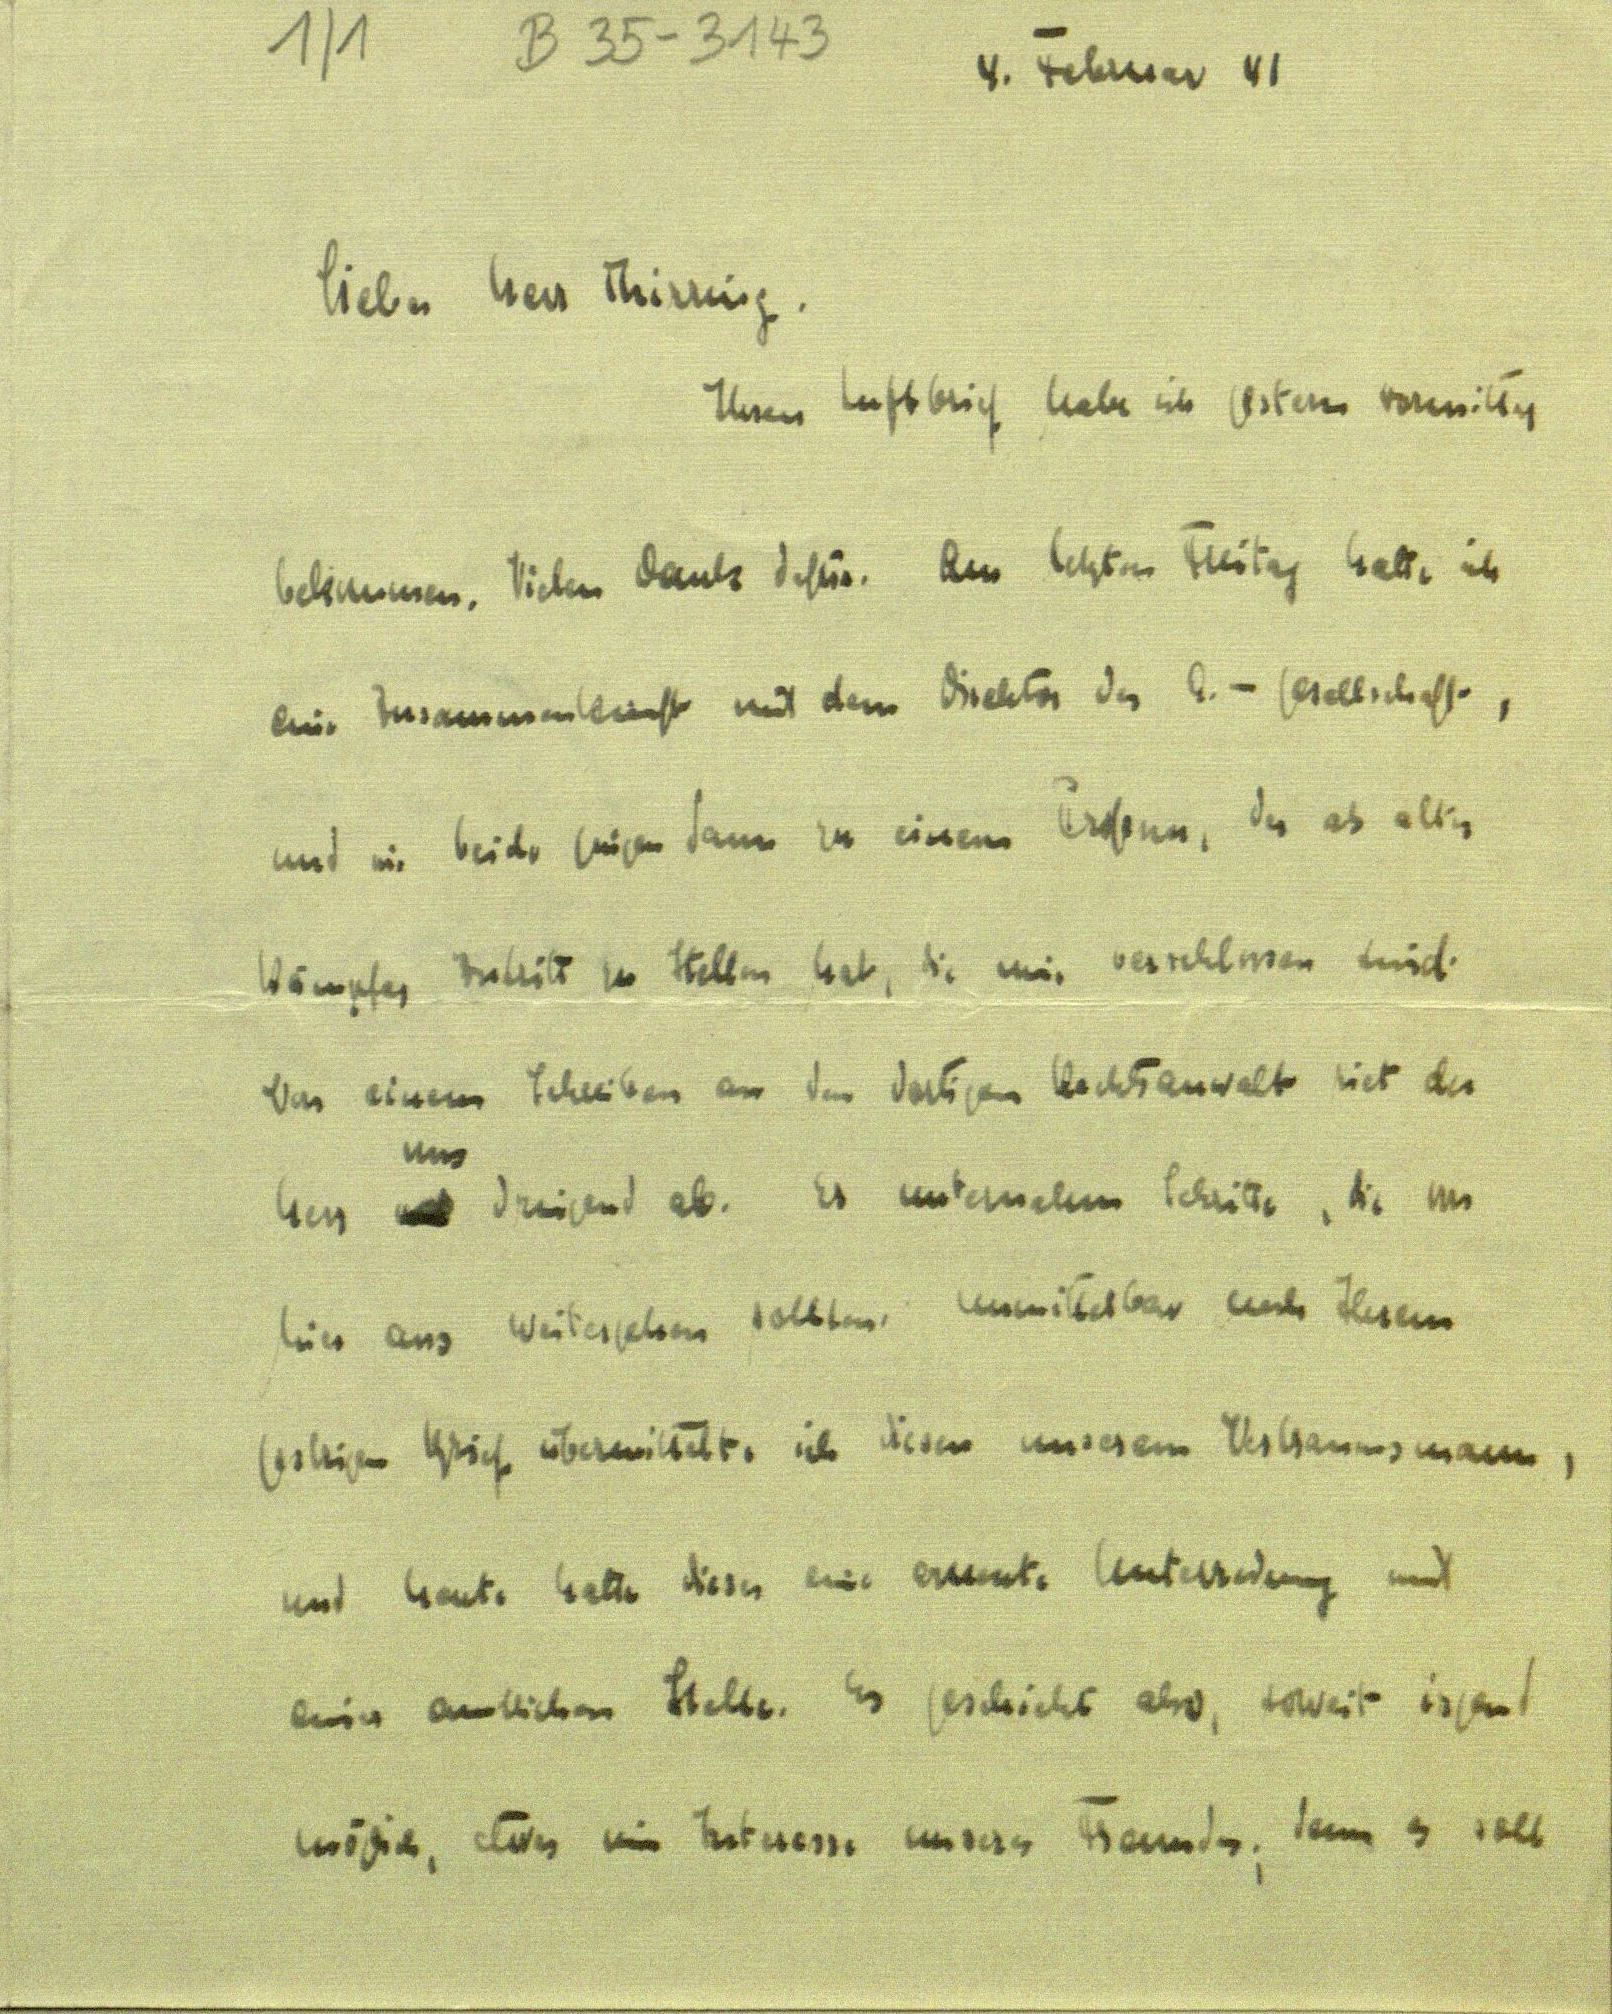 1/1 B 35-3143
4. Februar 41
Lieber Herr Thirring.
Ihren Luftbrief habe ich gestern vormittag
bekommen. Vielen Dank dafür. Am letzten Freitag hatte ich
eine Zusammenkunft mit dem Direktor der A.-Gesellschaft,
und wir beide gingen dann zu einem Herrn, der als alter
Kämpfer Zutritt zu Stellen hat, die mir verschlossen sind.
Von einem Schreiben an den dortigen Rechtsanwalt riet der
uns
Herr dringend ab. Er unternahm Schritte, die von
hier aus weitergehen sollten. Unmittelbar nach Ihrem
gestrigen Brief übermittelte ich diesen unserem Vertrauensmann,
und heute hatte dieser eine erneute Unterredung mit
einer amtlichen Stelle. Es geschieht also, soweit irgend
möglich, etwas im Interesse unseres Freundes; denn es soll